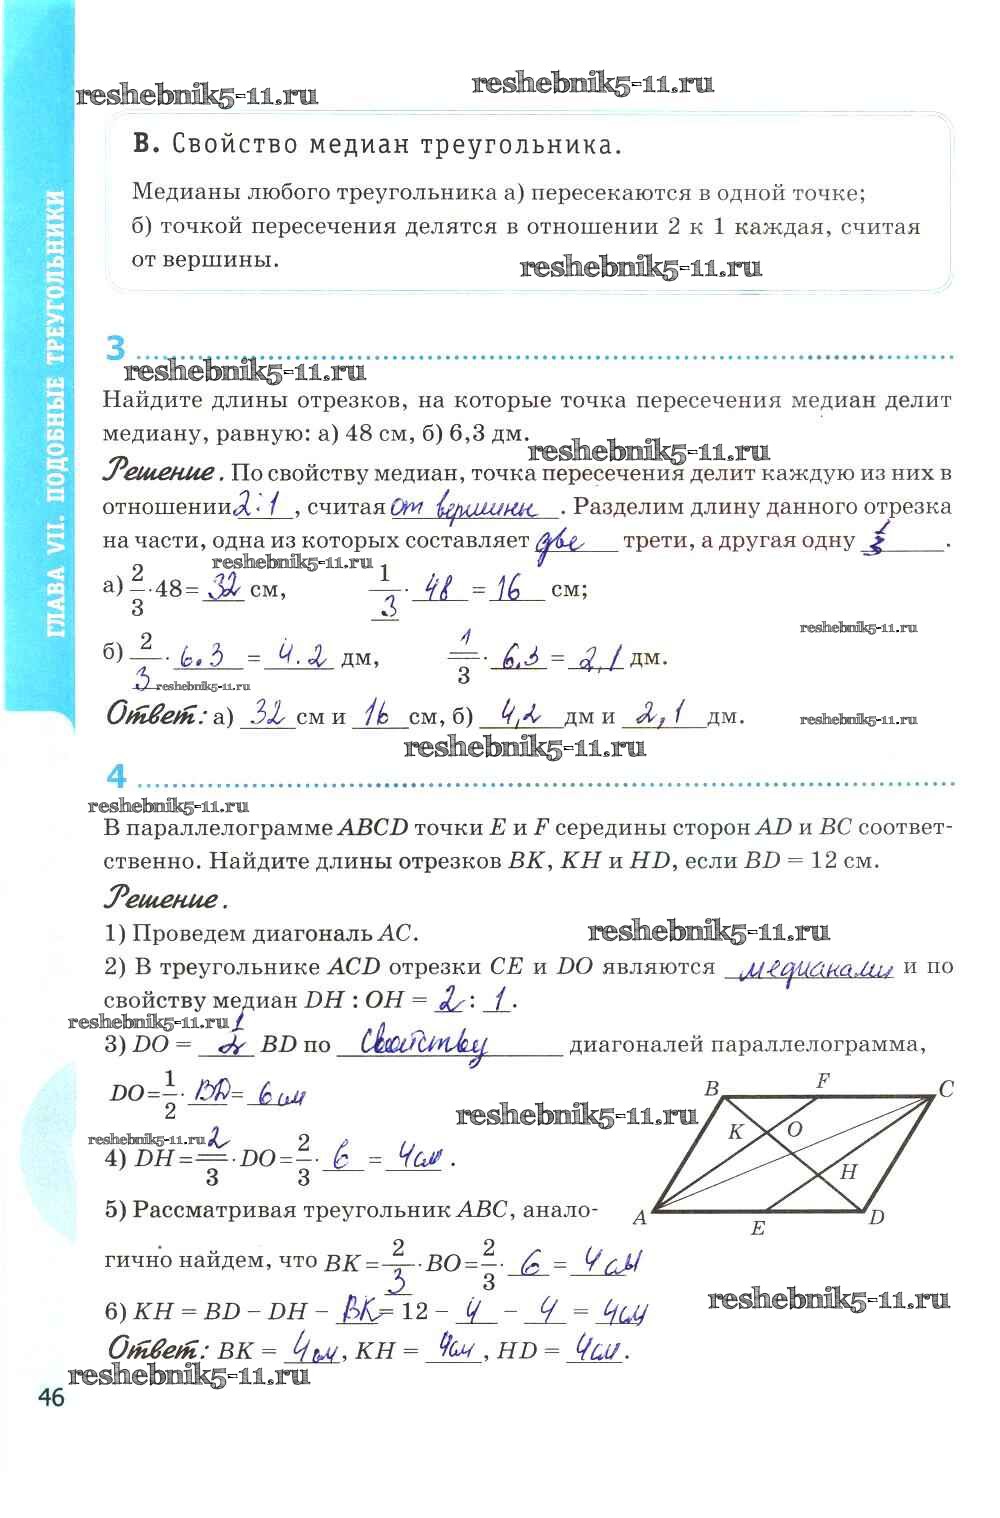 reshebnik5-11.ru
reshebnik5-11.ru
В. Свойство медиан треугольника.
Медианы любого треугольника а) пересекаются в одной точке;
б) точкой пересечения делятся в отношении 2 к 1 каждая, считая
от вершины.
reshebnik5-11.ru
ГЛАВА VII. ПОДОБНЫЕ ТРЕУГОЛЬНИКИ
3
reshebnik5-11.ru
Найдите длины отрезков, на которые точка пересечения медиан делит
медиану, равную: а) 48 см, б) 6,3 дм.
reshebnik5-11.ru
Решение. По свойству медиан, точка пересечения делит каждую из них в
отношении 2:1, считая от вершины. Разделим длину данного отрезка
на части, одна из которых составляет две трети, а другая одну 1/3.
reshebnik5-11.ru
а) 2/3 · 48 = 32 см, 1/3 · 48 = 16 см;
reshebnik5-11.ru
б) 2/3 · 6.3 = 4.2 дм, 1/3 · 6.3 = 2,1 дм.
reshebnik5-11.ru
Ответ: а) 32 см и 16 см, б) 4,2 дм и 2,1 дм.
reshebnik5-11.ru
reshebnik5-11.ru
4
reshebnik5-11.ru
В параллелограмме ABCD точки E и F середины сторон AD и BC соответ-
ственно. Найдите длины отрезков BK, KH и HD, если BD = 12 см.
Решение.
1) Проведем диагональ AC.
reshebnik5-11.ru
2) В треугольнике ACD отрезки CE и DO являются медианами и по
свойству медиан DH : OH = 2 : 1.
reshebnik5-11.ru
3) DO = 1/2 BD по свойству диагоналей параллелограмма,
DO = 1/2 · BD = 6 см
reshebnik5-11.ru
reshebnik5-11.ru
4) DH = 2/3 · DO = 2/3 · 6 = 4см.
5) Рассматривая треугольник ABC, анало-
гично найдем, что BK = 2/3 · BO = 2/3 · 6 = 4 см
B F C
K O
H
A E D
6) KH = BD – DH – BK = 12 – 4 – 4 = 4см
reshebnik5-11.ru
Ответ: BK = 4 см, KH = 4см, HD = 4см.
reshebnik5-11.ru
46